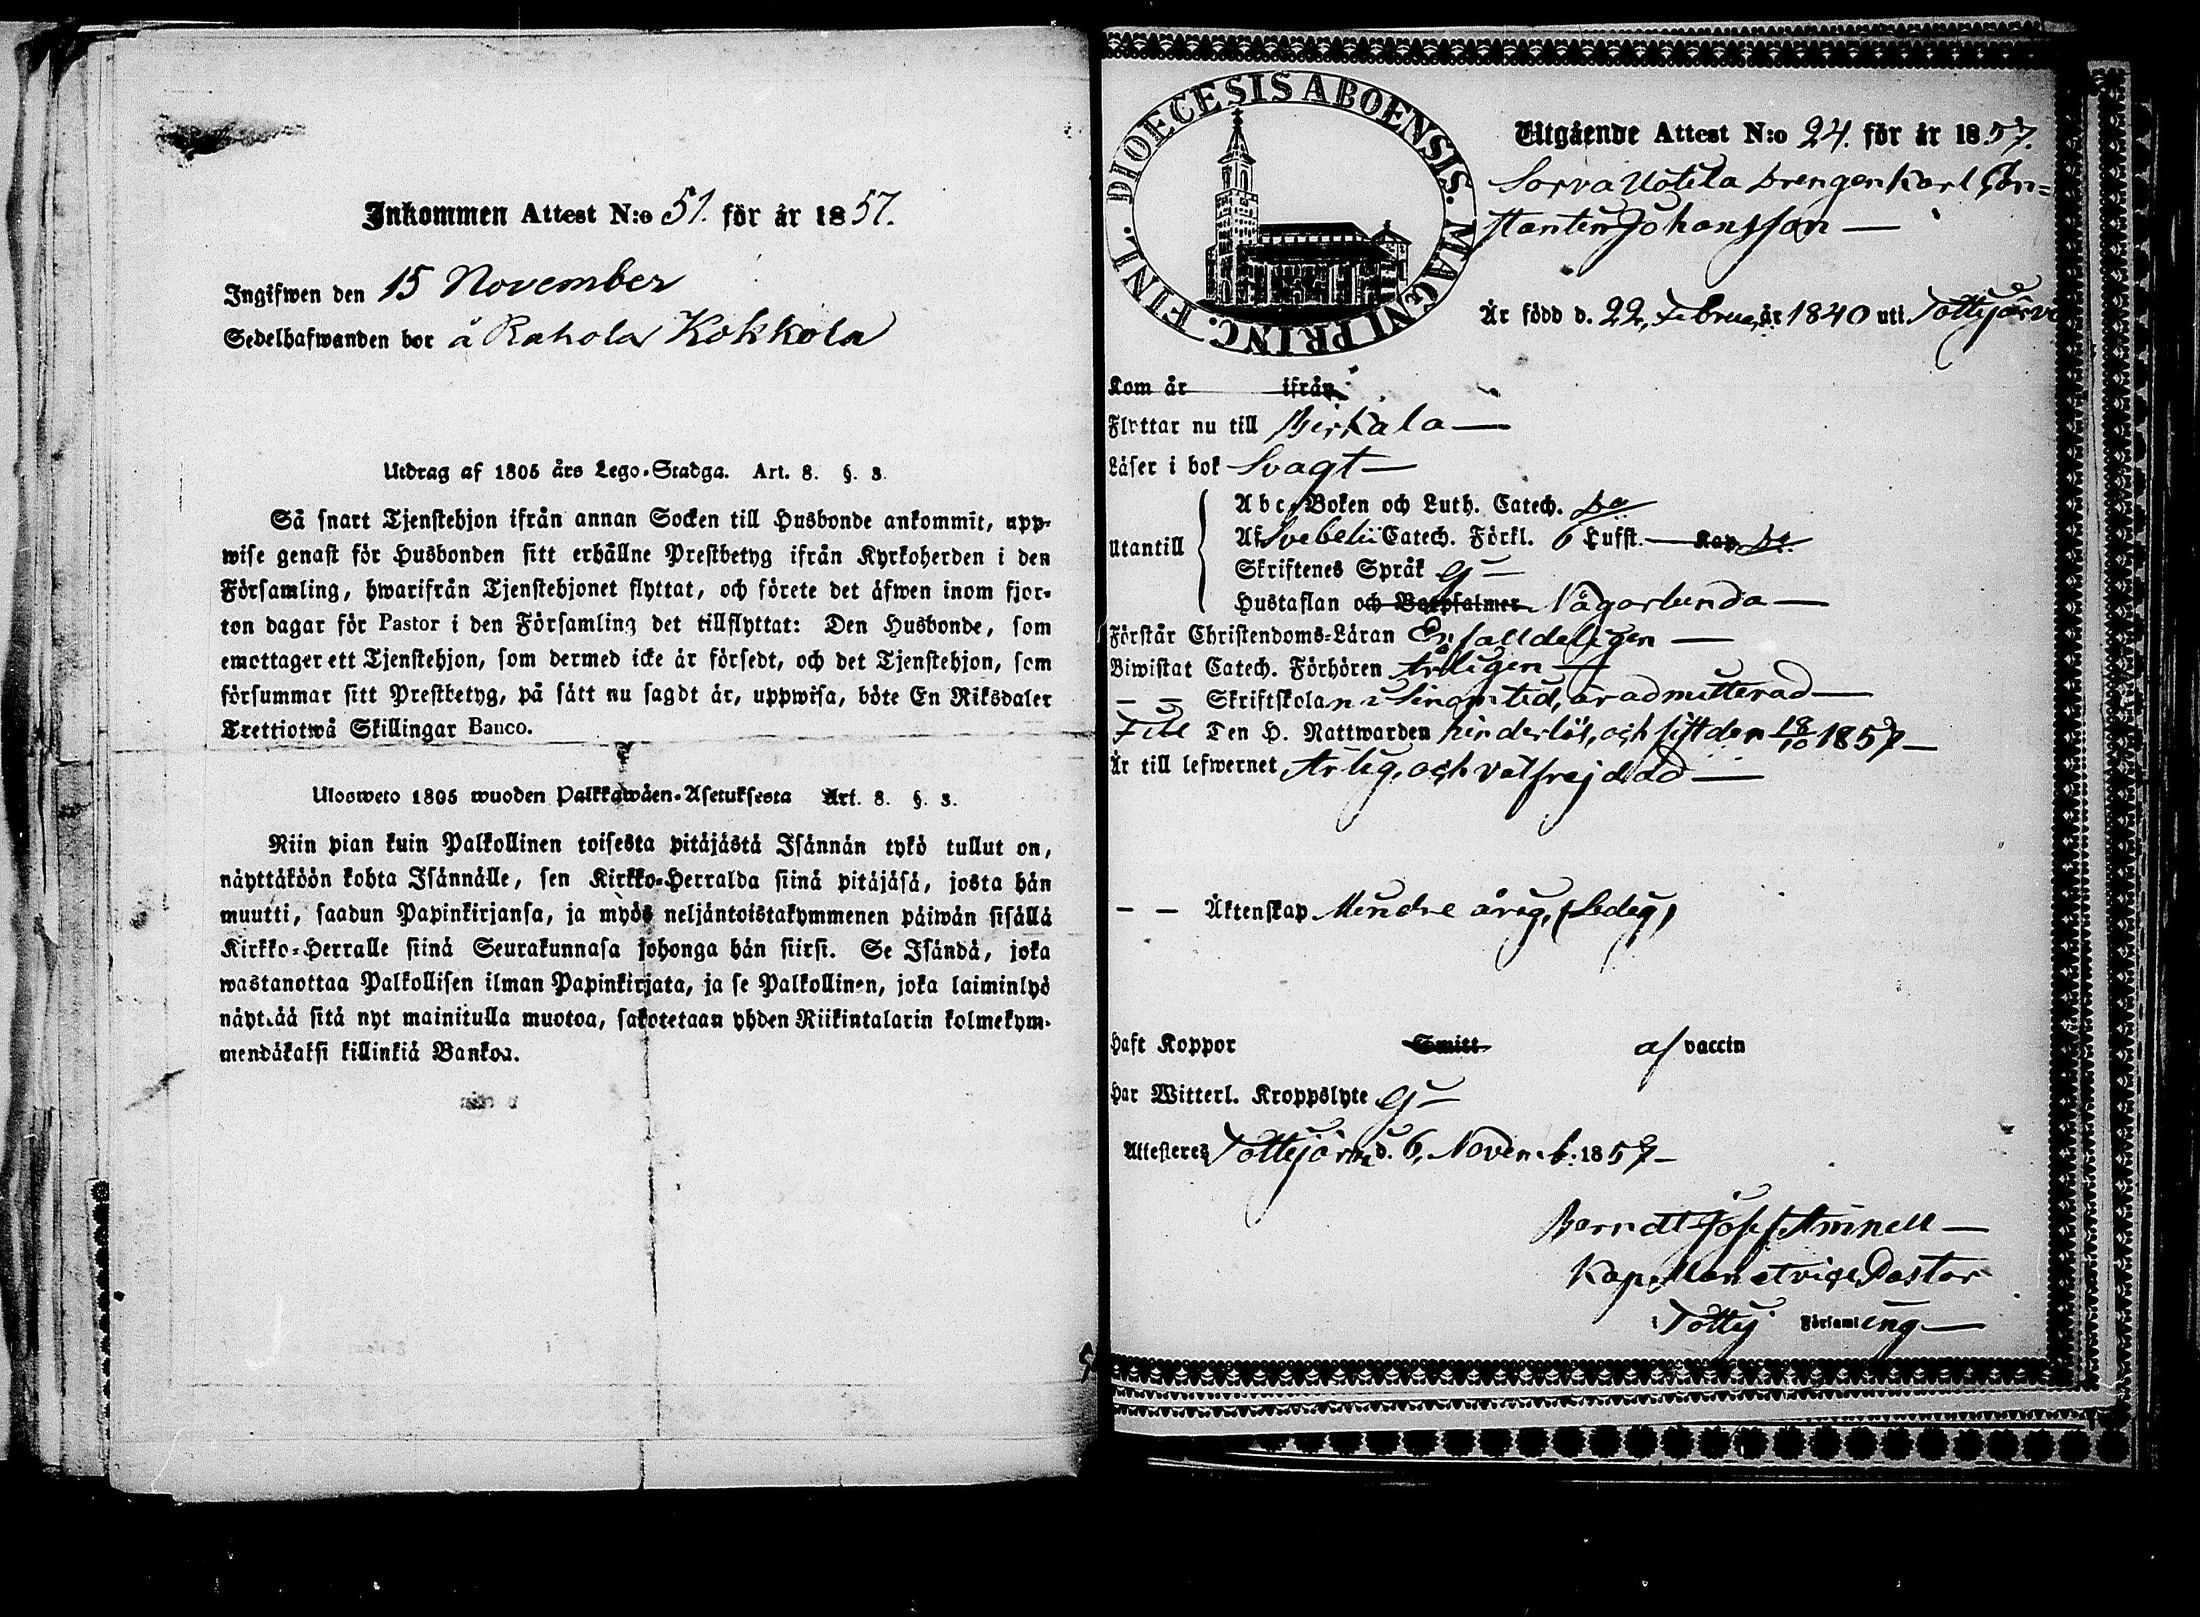 Inkommen Attest N:o 51. för år 1857.
Ingifwen den 15 November
Sedelhafwanden bor å Rahola Kokkola
Utdrag af 1805 års Lego-Stadga. Art. 8. §. 3.
Så snart Tjenstehjon ifrån annan Socken till Husbonde ankommit, upp-
wise genast för Husbonden sitt erhållne Prestbetyg ifrån Kyrkoherden i den
Församling, hwarifrån Tjenstehjonet flyttat, och förete det äfwen inom fjor-
ton dagar för Pastor i den Församling det tillflyttat: Den Husbonde, som
emottager ett Tjenstehjon, som dermed icke är försedt, och det Tjenstehjon, som
försummar sitt Prestbetyg, på sätt nu sagdt är, uppwisa, böte En Riksdaler
Trettiotwå Skillingar Banco.
Ulosweto 1805 wuoden Palkkawäen-Asetuksesta Art. 8. §. 3.
Niin pian kuin Palkollinen toisesta pitäjästä Isännän tykö tullut on,
näyttäköön kohta Isännälle, sen Kirkko-Herralda siinä pitäjäsä, josta hän
muutti, saadun Papinkirjansa, ja myös neljäntoistakymmenen päiwän sisällä
Kirkko-Herralle siinä Seurakunnasa johonga hän siirsi. Se Isändä, joka
wastanottaa Palkollisen ilman Papinkirjata, ja se Palkollinen, joka laiminlyö
näyttää sitä nyt mainitulla muotoa, sakotetaan yhden Riikintalarin kolmekym-
mendäkaksi killinkiä Bankoa.
DIOECESIS ABOENSIS. MAGNI PRINC. FINL.
Utgående Attest N:o 24. för år 1857.
Sorva Uotila Drengen Karl Con=
stantin Johansson
Är född d. 22, Februa, år 1840 uti Tottijärvi
Kom år ifrån
Flyttar nu till Birkala
Läser i bok Svagt
Utantill
Abc-Boken och Luth. Catech. Do
Af Svebelii Catech. Förkl. 6 Lufst. Kap Do.
Skriftenes Språk Ej
Hustaflan och Botpsalmer Någorlunda
Förstår Christendoms-Läran Enfalldeligen
Biwistat Catech. Förhören Årligen
Skriftskolan i sinom tid, är admitterad
Till Den H. Nattwarden hinderlös, och sist den 18/10 1857
Är till lefwernet Ärlig, och välfrejdad
Äktenskap Mindre årig, (Ledig)
Haft Koppor Smitt af vaccin
Har Witterl. Kroppslyte Ej
Attesteres Tottijärvi d. 6, Novemb: 1857
Berndt Josef Aminell
Kapellan et vice Pastor
i Tottij Församling